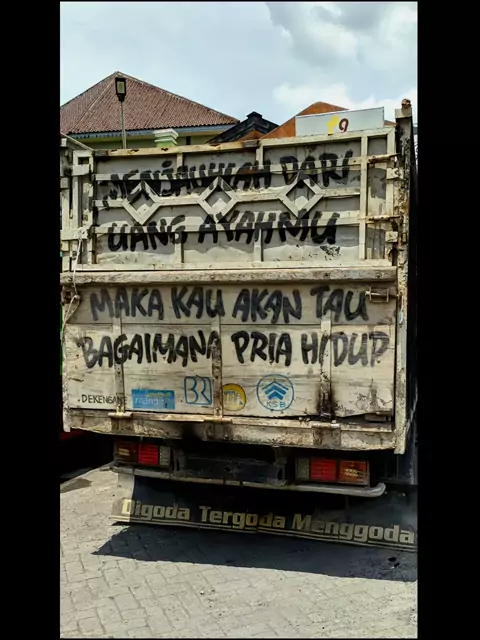 19
MENJAUHLAH DARI
UANG AYAHMU
MAKA KAU AKAN TAU
BAGAIMANA PRIA HIDUP
.DEKENGANE mandiri
KSB
Digoda Tergoda Menggoda